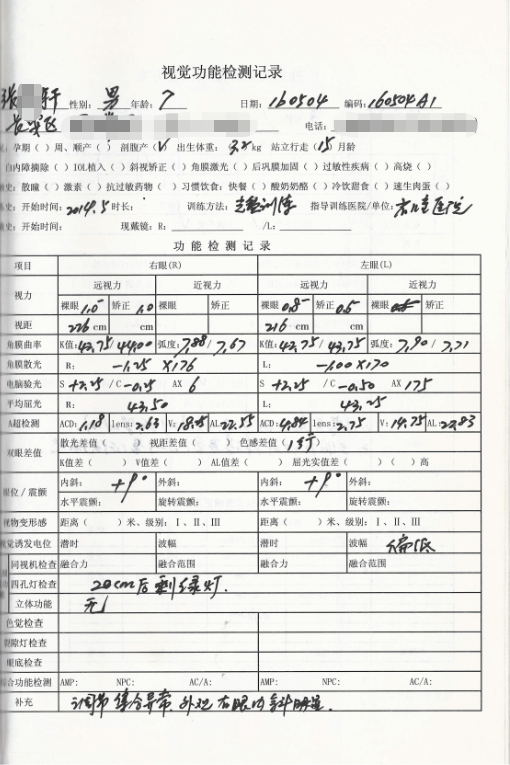 视觉功能检测记录
张 轩 性别: 男 年龄: 7 日期: 160504 编码: 160504A1
电话:
孕期( )周、顺产( )剖腹产(√)出生体重: kg 站立行走(15)月龄
白内障摘除( )IOL植入( )斜视矫正( )角膜激光( )后巩膜加固( )过敏性疾病( )高烧( )
史: 散瞳( )激素( )抗过敏药物( )习惯饮食: 快餐( )酸奶奶酪( )冷饮甜食( )速生肉蛋( )
史: 开始时间: 2014.5 时长: 训练方法: 指导训练医院/单位:
史: 开始时间: 现戴镜: R: /L:
功能检测记录
项目 右眼(R) 左眼(L)
视力 远视力 近视力 远视力 近视力
裸眼 1.0 矫正 1.0 裸眼 矫正 裸眼 0.8 矫正 0.5 裸眼 矫正
视距 226 cm cm 216 cm cm
角膜曲率 K值: 42.75/44.00 弧度: 7.88/7.67 K值: 42.75/43.75 弧度: 7.90/7.71
角膜散光 R: -1.25 X176 L: -1.00 X170
电脑验光 S +2.25 /C -0.25 AX 6 S +2.25 /C -0.50 AX 175
平均屈光 R: 43.50 L: 43.25
A超检测 ACD: lens: 2.63 V: AL: 22.55 ACD: 4.84 lens: 2.75 V: 14.75 AL: 22.83
双眼差值 散光差值( ) 视距差值( ) 色感差值(1行)
K值差( ) V值差( ) AL值差( ) 屈光实值差( )( )高
眼位/震颤 内斜: +9° 外斜: 内斜: +9° 外斜:
水平震颤: 旋转震颤: 水平震颤: 旋转震颤:
视物变形感 距离( )米、级别: Ⅰ、Ⅱ、Ⅲ 距离( )米、级别: Ⅰ、Ⅱ、Ⅲ
视觉诱发电位 潜时 波幅 潜时 波幅 偏低
同视机检查 融合力 融合范围 融合力 融合范围
四孔灯检查 20cm后剩绿灯.
立体功能 无
色觉检查
裂隙灯检查
眼底检查
综合功能检测 AMP: NPC: AC/A: AMP: NPC: AC/A:
补充 调节集合异常. 外观右眼内斜明显.